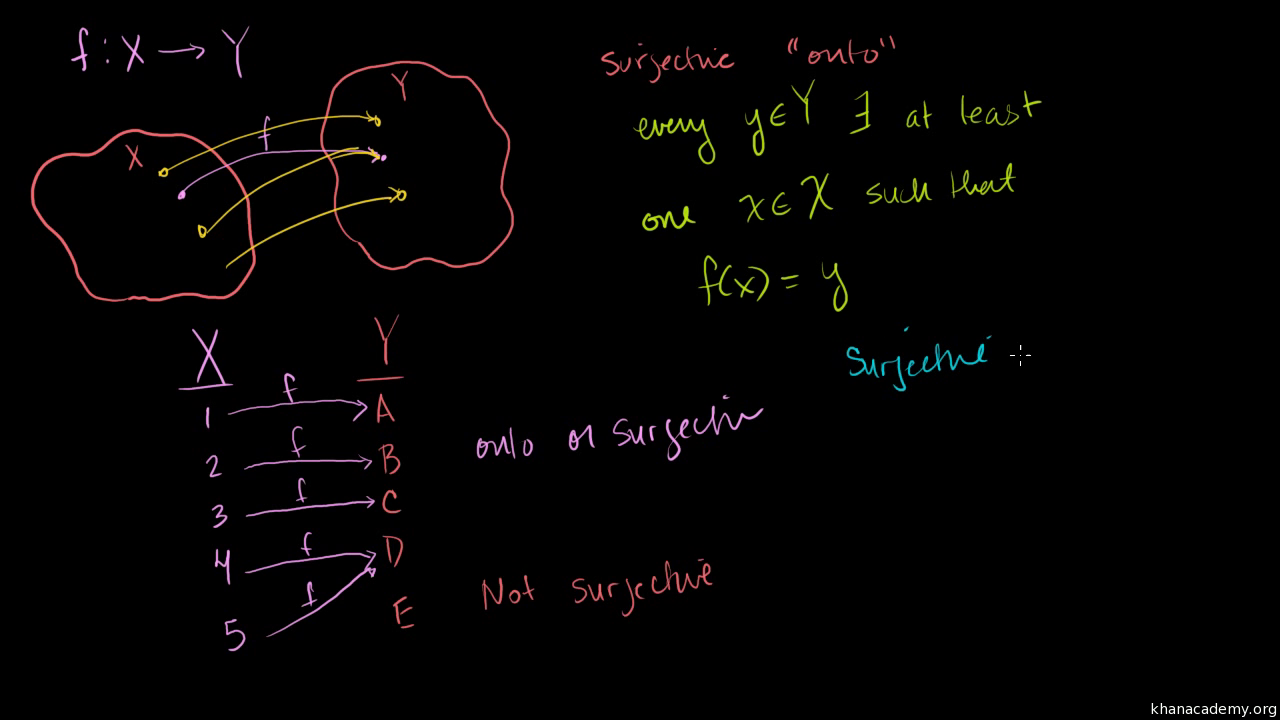 f : X → Y
surjective "onto"
Y
every y ∈ Y ∃ at least
f
X
one x ∈ X such that
f(x) = y
X Y
Surjective
f
1 A
onto or surjective
f
2 B
f
3 C
f
4 D
Not surjective
f
5 E
khanacademy.org